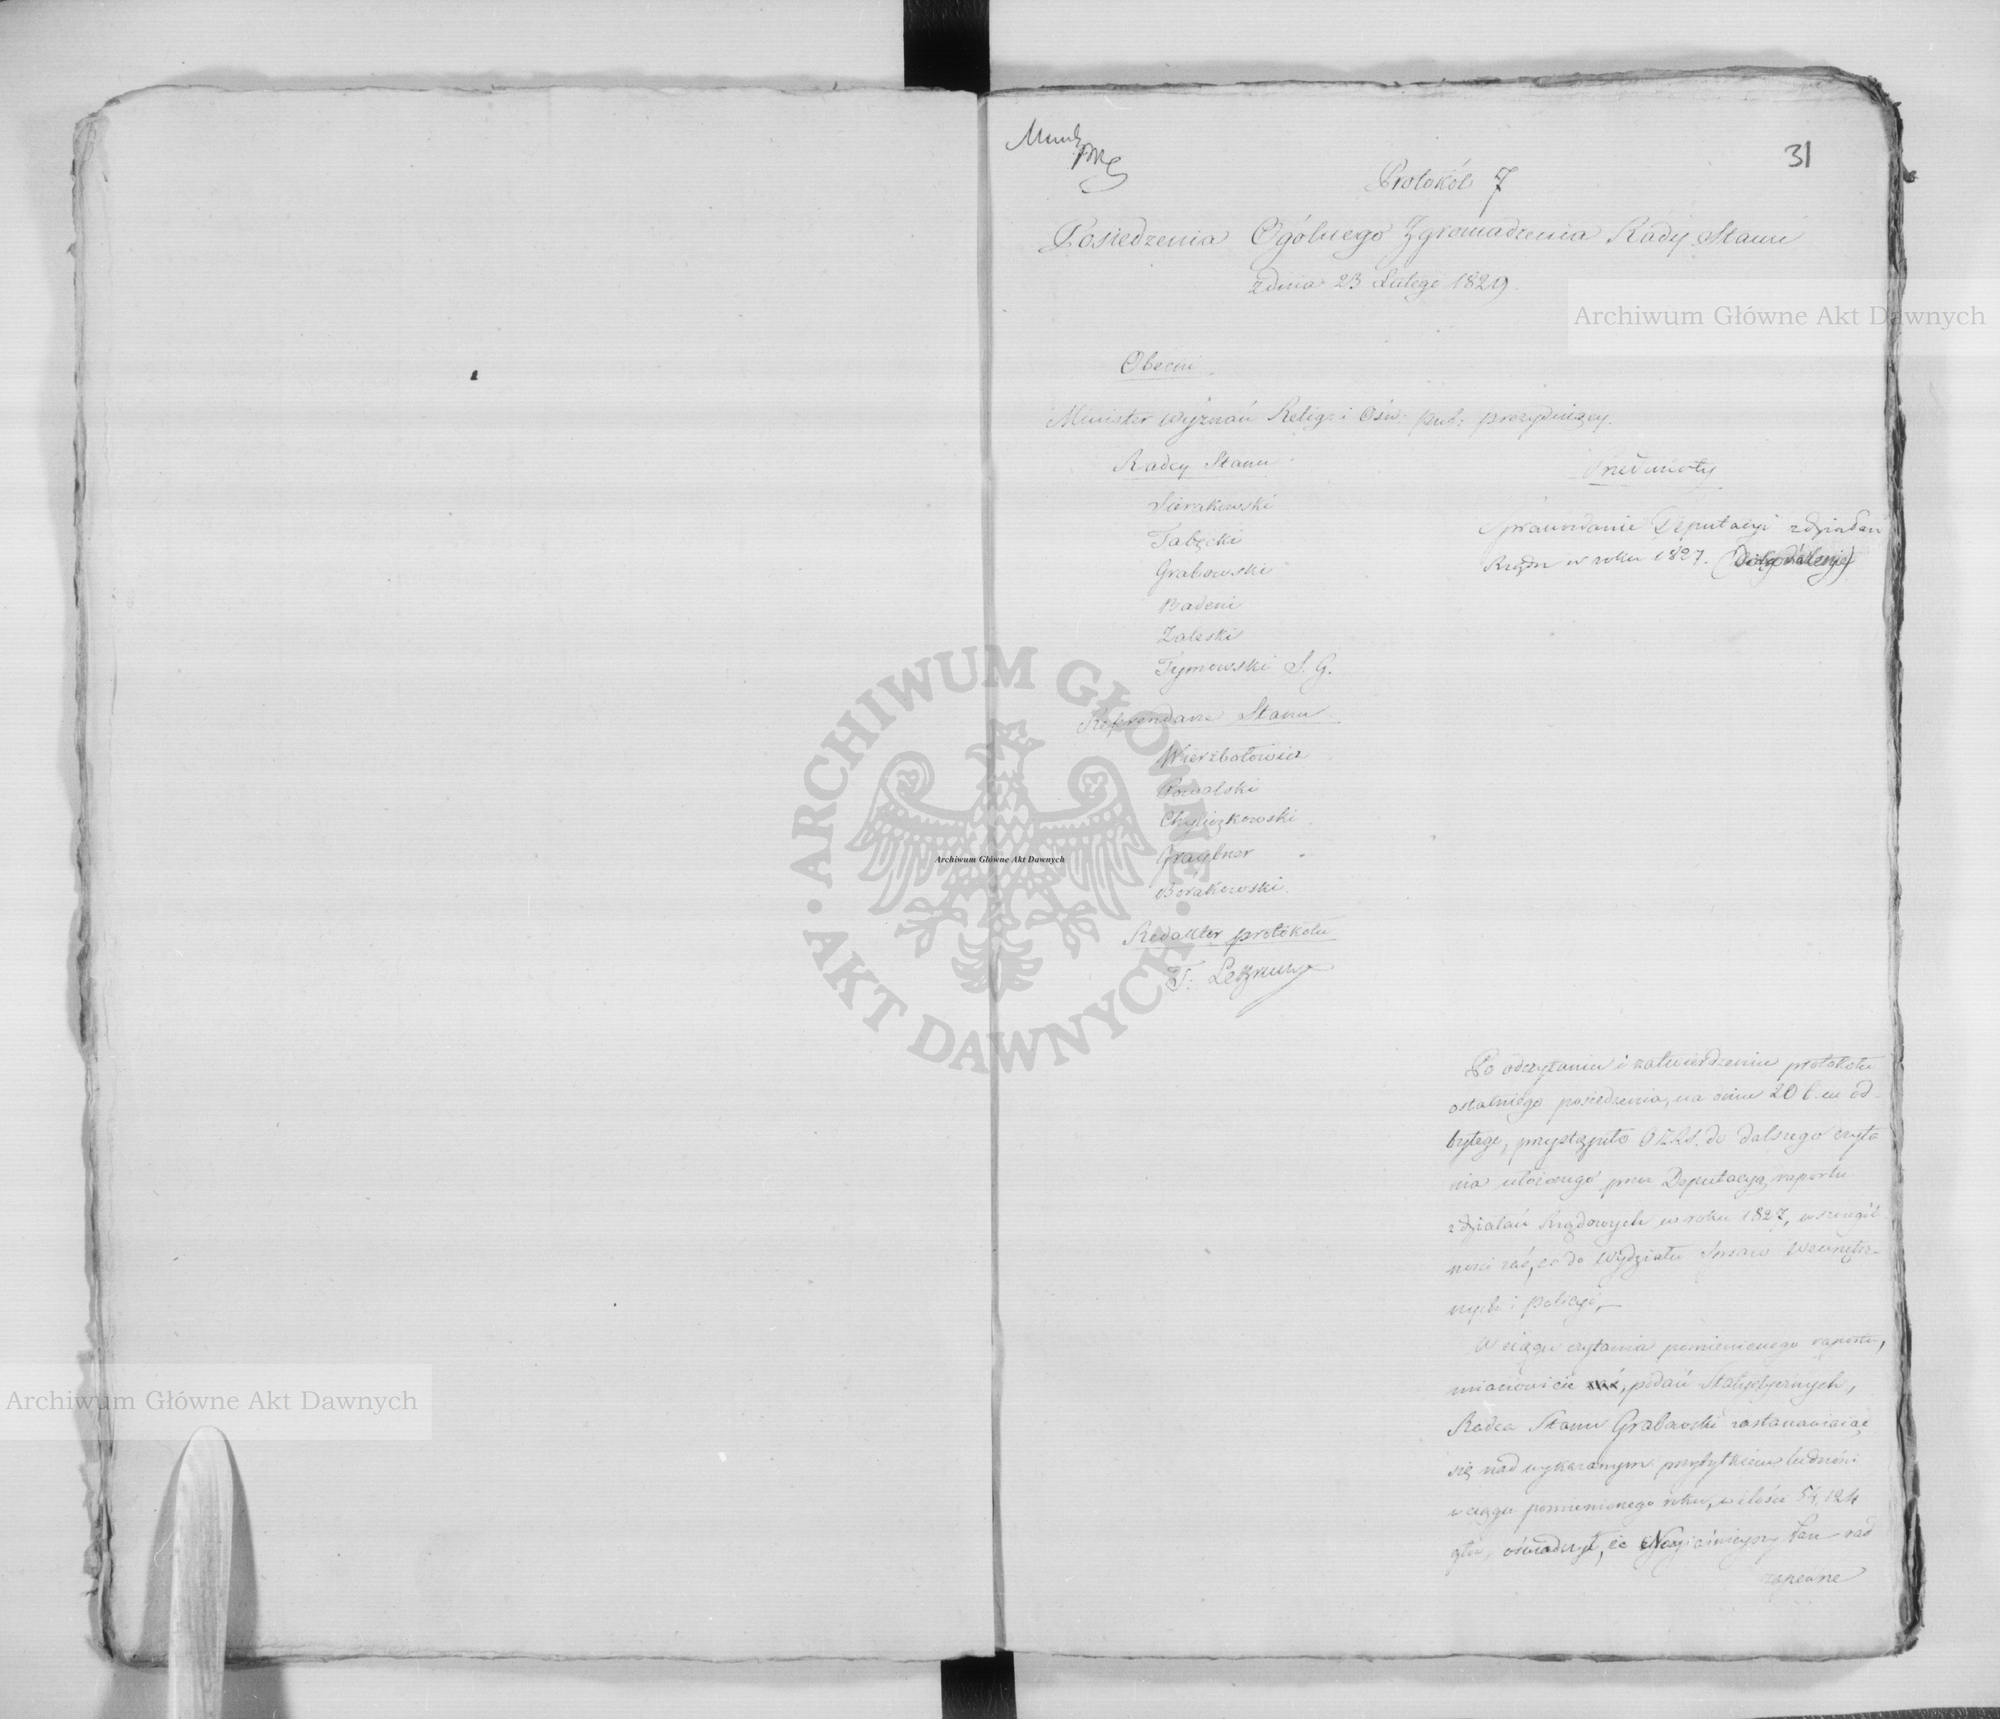 31
Protokół 7
Posiedzenia Ogólnego Zgromadzenia Rady Stanu
z dnia 23 Lutego 1829.
Obecni
Minister Wyznań Relig: i Ośw: pub: prezydujący.
Radcy Stanu
Przedmioty
Sierakowski
Sprawozdanie Deputacyi z działań
Tabęcki
Rządu w roku 1827.
Grabowski
Badeni
Zaleski
Tymowski S. G.
Referendarze Stanu
Wierzbołowicz
Chyliczkowski
Graybner
Borakowski
Redaktor protokołu
Po odczytaniu i zatwierdzeniu protokołu
ostatniego posiedzenia, na dniu 20 b. m od-
bytego, przystąpiło OZRS. do dalszego czyta
nia ułożonego przez Deputacyą raportu
z działań Rządowych w roku 1827, w szczegól
ności zaś, co do Wydziału Spraw Wewnętrz-
nych i policyi,
W ciągu czytania pomienionego raportu,
mianowicie podań Statystycznych,
Radca Stanu Grabowski zastanawiaiąc
się nad wykazanym przybytkiem ludności
w ciągu pomienionego roku, w ilości 54,124
głów, oświadczył, że Nayiaśnieyszy Pan rad
zapewne
Archiwum Główne Akt Dawnych
Archiwum Główne Akt Dawnych
Archiwum Główne Akt Dawnych
ARCHIWUM GŁÓWNE AKT DAWNYCH